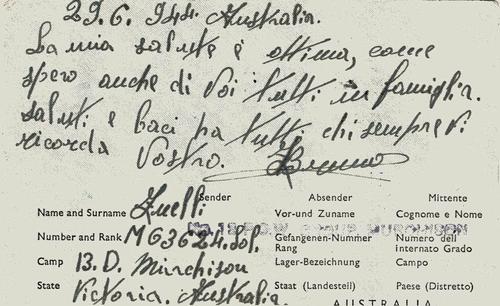 29.6.944. Australia.
La mia salute è ottima, come
spero anche di Voi tutti in famiglia.
Saluti e baci pa tutti chi sempre Vi
ricorda
Vostro. Bruno
Sender Absender Mittente
Name and Surname Zuelli Vor-und Zuname Cognome e Nome
No. 13 P.O.W. GROUP MURCHISON
Number and Rank MG3624. Sol. Gefangenen-Nummer Numero dell
Rang internato Grado
Camp 13.D. Minchison Lager-Bezeichnung Campo
State Victoria. Australia. Staat (Landesteil) Paese (Distretto)
AUSTRALIA